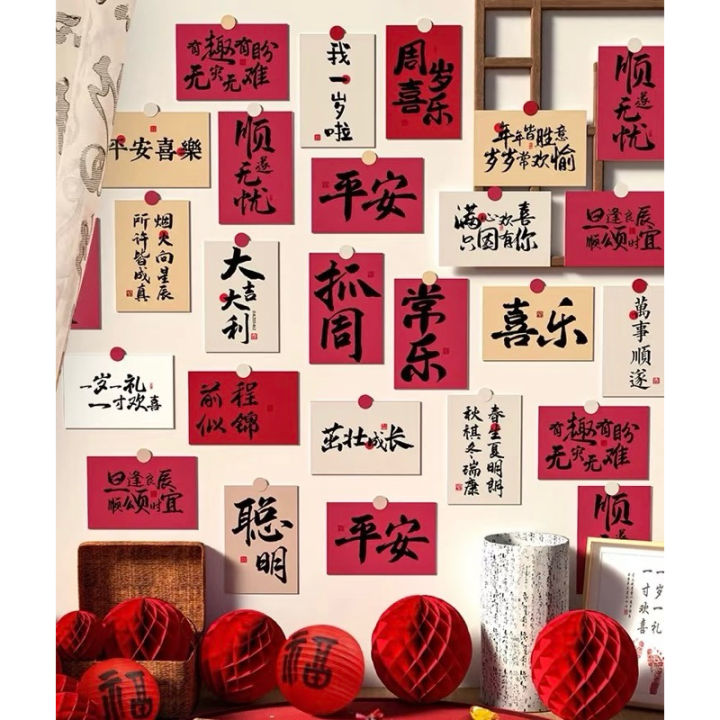 有趣有盼
无灾无难
我一岁啦
周岁
喜乐
顺遂
无忧
平安喜樂
顺遂
无忧
年年皆胜意
岁岁常欢愉
平安
满心欢喜
只因有你
旦逢良辰
顺颂时宜
烟火向星辰
所许皆成真
大吉
大利
抓周
常乐
喜乐
萬事順遂
一岁一礼
一寸欢喜
前程
似锦
茁壮成长
春生夏明朗
秋祺冬瑞康
有趣有盼
无灾无难
旦逢良辰
顺颂时宜
聪明
平安
顺
一岁一礼
一寸欢喜
福
福